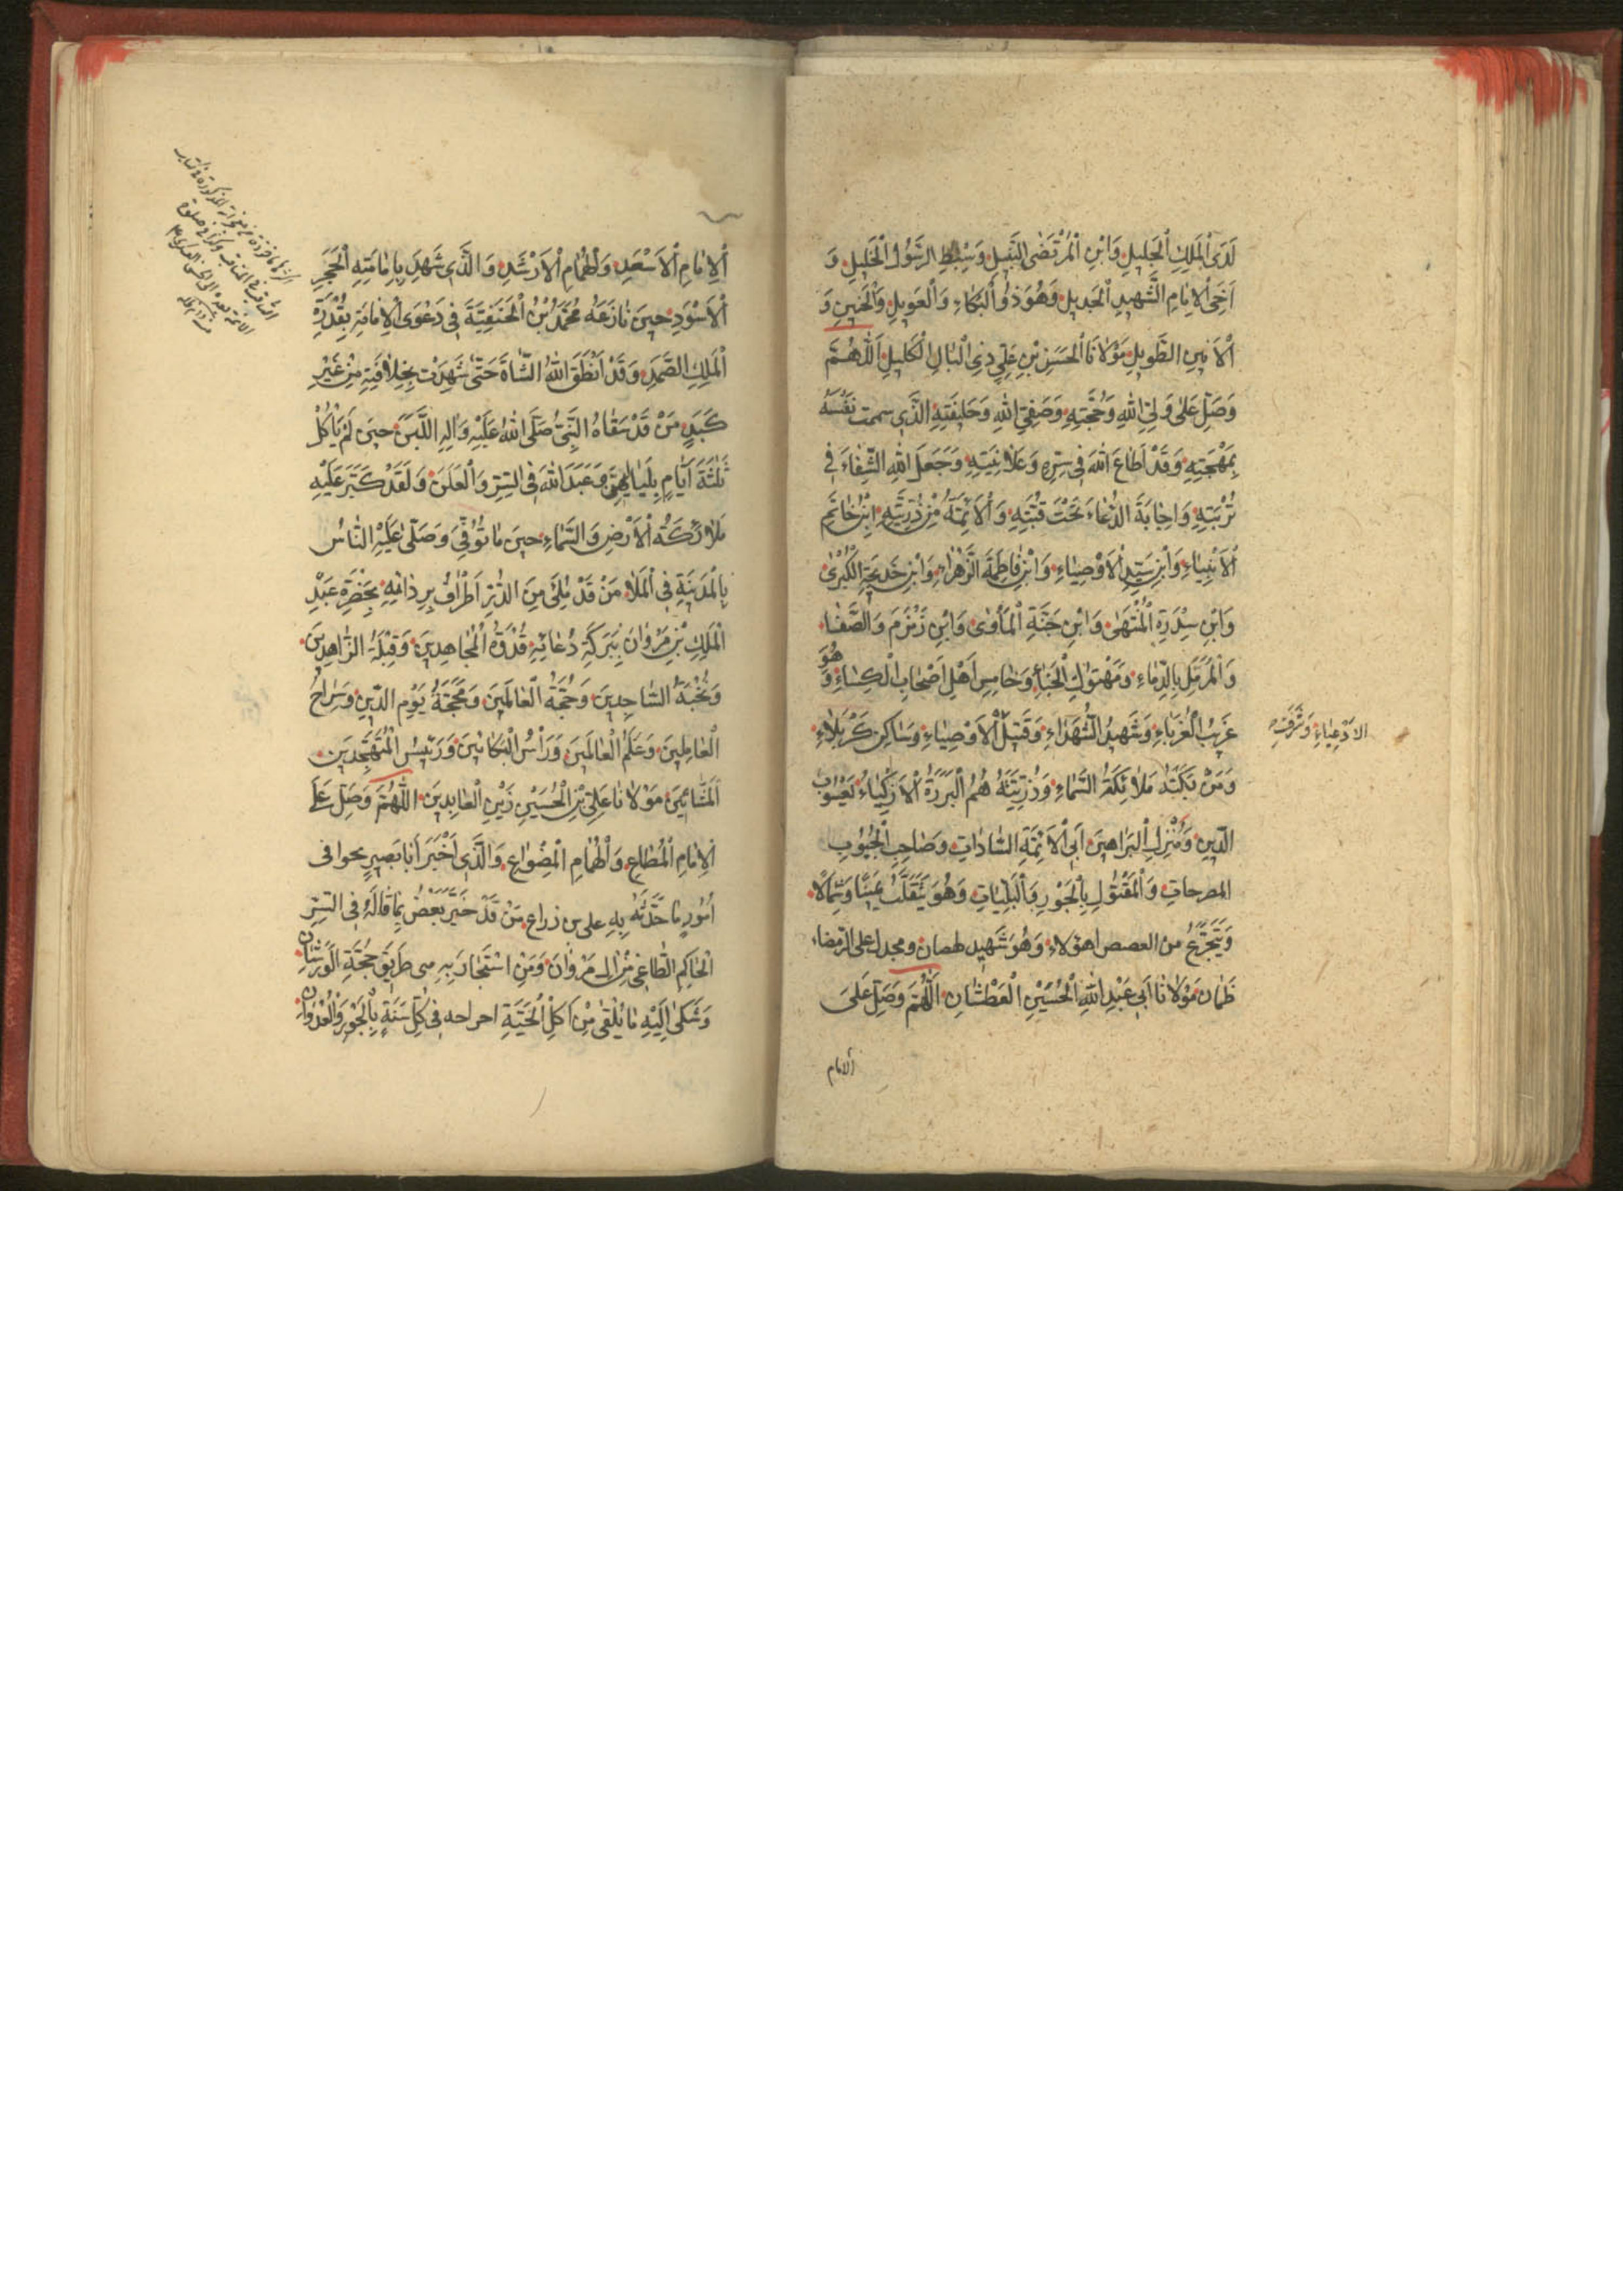 لَدَى الْمَلِكِ الْجَلِيلِ وَابْنِ الْمُرْتَضَى النَّبِيلِ وَسِبْطِ الرَّسُولِ الْخَلِيلِ وَ
اَخِي الْاِمَامِ الشَّهِيدِ الْجَدِيلِ وَهُوَ ذُو الْبُكَاءِ وَالْعَوِيلِ وَالْحَنِينِ وَ
الْاَنِينِ الطَّوِيلِ مَوْلَانَا الْحَسَنِ بْنِ عَلِيٍّ ذِي الْبَالِ الْكَلِيلِ اَللّٰهُمَّ
وَصَلِّ عَلٰى وَلِيِّ اللهِ وَحُجَّتِهِ وَصَفِيِّ اللهِ وَخَلِيفَتِهِ الَّذِي سمحت نَفْسُهُ
بِمُهْجَتِهِ وَقَدْ اَطَاعَ اللهَ فِي سِرِّهِ وَعَلَانِيَتِهِ وَجَعَلَ اللهُ الشِّفَاءَ فِي
تُرْبَتِهِ وَاِجَابَةَ الدُّعَاءِ تَحْتَ قُبَّتِهِ وَالْاَئِمَّةَ مِنْ ذُرِّيَّتِهِ ابْنِ خَاتَمِ
الْاَنْبِيَاءِ وَابْنِ سَيِّدِ الْاَوْصِيَاءِ وَابْنِ فَاطِمَةَ الزَّهْرَاءِ وَابْنِ خَدِيجَةِ الْكُبْرٰى
وَابْنِ سِدْرَةِ الْمُنْتَهٰى وَابْنِ جَنَّةِ الْمَأْوٰى وَابْنِ زَمْزَمَ وَالصَّفَا
وَالْمُرَمَّلِ بِالدِّمَاءِ وَمَهْتُوكِ الْخِبَاءِ وَخَامِسِ اَهْلِ اَصْحَابِ الْكِسَاءِ وَهُوَ
غَرِيبُ الْغُرَبَاءِ وَشَهِيدُ الشُّهَدَاءِ وَقَتِيلُ الْاَوْصِيَاءِ وَسَاكِنُ كَرْبَلَاءِ
الادعياء وشرفه
وَمَنْ بَكَتْهُ مَلَائِكَةُ السَّمَاءِ وَذُرِّيَّتُهُ هُمُ الْبَرَرَةُ الْاَزْكِيَاءُ يَعْسُوبِ
الدِّينِ وَمُنْزِلِ الْبَرَاهِينَ اَبِي الْاَئِمَّةِ السَّادَاتِ وَصَاحِبِ الْجُيُوبِ
المضرجات وَالْمَقْتُولِ بِالْجَوْرِ وَالْبَلِيَّاتِ وَهُوَ يَتَقَلَّبُ يَمِينًا وَشِمَالًا
وَيَتَجَرَّعُ من الغصص اهولاء وَهُوَ شَهِيد لهفان ومجدل على الرمضاء
ظَمْاٰن مَوْلَانَا اَبِي عَبْدِ اللهِ الْحُسَيْنِ الْعَطْشَانِ اَللّٰهُمَّ وَصَلِّ عَلٰى
الامام
اَلْاِمَامِ الْاَسْعَدِ وَالْهُمَامِ الْاَرْشَدِ وَالَّذِي شَهِدَ بِاِمَامَتِهِ الْحَجَرِ
الْاَسْوَدِ حِينَ نَازَعَهُ مُحَمَّدُ بْنُ الْحَنَفِيَّةَ فِي دَعْوَى الْاِمَامَةِ بِقُدْرَةِ
الْمَلِكِ الصَّمَدِ وَقَدْ اَنْطَقَ اللهُ الشَّاةَ حَتّٰى شَهِدَتْ بِخِلَافَتِهِ مِنْ غَيْرِ
كَبَدٍ مَنْ قَدْ سَقَاهُ النَّبِيُّ صَلَّى اللهُ عَلَيْهِ وَاٰلِهِ اللَّبَنَ حِينَ لَمْ يَاْكُلْ
ثَلٰثَةَ اَيَّامٍ بِلَيَالِيهِنَّ وَعَبَدَ اللهَ فِي السِّرِّ وَالْعَلَنِ وَلَقَدْ كَبَّرَ عَلَيْهِ
مَلَائِكَةُ الْاَرْضِ وَالسَّمَاءِ حِينَ مَا تُوُفِّيَ وَصَلّٰى عَلَيْهِ النَّاسُ
بِالْمَدِينَةِ فِي الْمَلَاءِ مَنْ قَدْ مُلِئَ مِنَ الدُّرِّ اَطْرَافُ رِدَائِهِ بِحَضْرَةِ عَبْدِ
الْمَلِكِ بْنِ مَرْوَانَ بِبَرَكَةِ دُعَائِهِ قُدْوَةُ الْمُجَاهِدِينَ وَقِبْلَةُ الزَّاهِدِينَ
وَنُخْبَةُ السَّاجِدِينَ وَحُجَّةُ الْعَالَمِينَ وَمَحَجَّةُ يَوْمِ الدِّينِ وَسِرَاجُ
الْعَامِلِينَ وَعَلَمُ الْعَالَمِينَ وَرَأْسُ الْبَكَّائِينَ وَرَئِيسُ الْمُتَهَجِّدِينَ
الْمَشَّائِينَ مَوْلَانَا عَلِيِّ بْنِ الْحُسَيْنِ زَيْنِ الْعَابِدِينَ اَللّٰهُمَّ وَصَلِّ عَلَى
الْاِمَامِ الْمُطَاعِ وَالْهُمَامِ الْمِضْوَاعِ وَالَّذِي اَخْبَرَ اَبَا بَصِيرٍ بحوافى
اُمُورٍ مَا حَدَّثَهُ بِهِ على بن ذراع مَنْ قَدْ خَبَّرَ بَعْضُ بِمَا قَالَهُ فِي السِّرِّ
الْحَاكِمِ الطَّاغِي مِنْ اٰلِ مَرْوَانَ وَمَنِ اسْتَجَارَ بِهِ فِي طَرِيقِ حَجَّةِ الْوَرَشَانِ
وَشَكٰى اِلَيْهِ مَا يُلْقٰى مِنْ اَكْلِ الْحَيَّةِ افراخه فِي كُلِّ سَنَةٍ بِالْجَوْرِ وَالْعُدْوَانِ